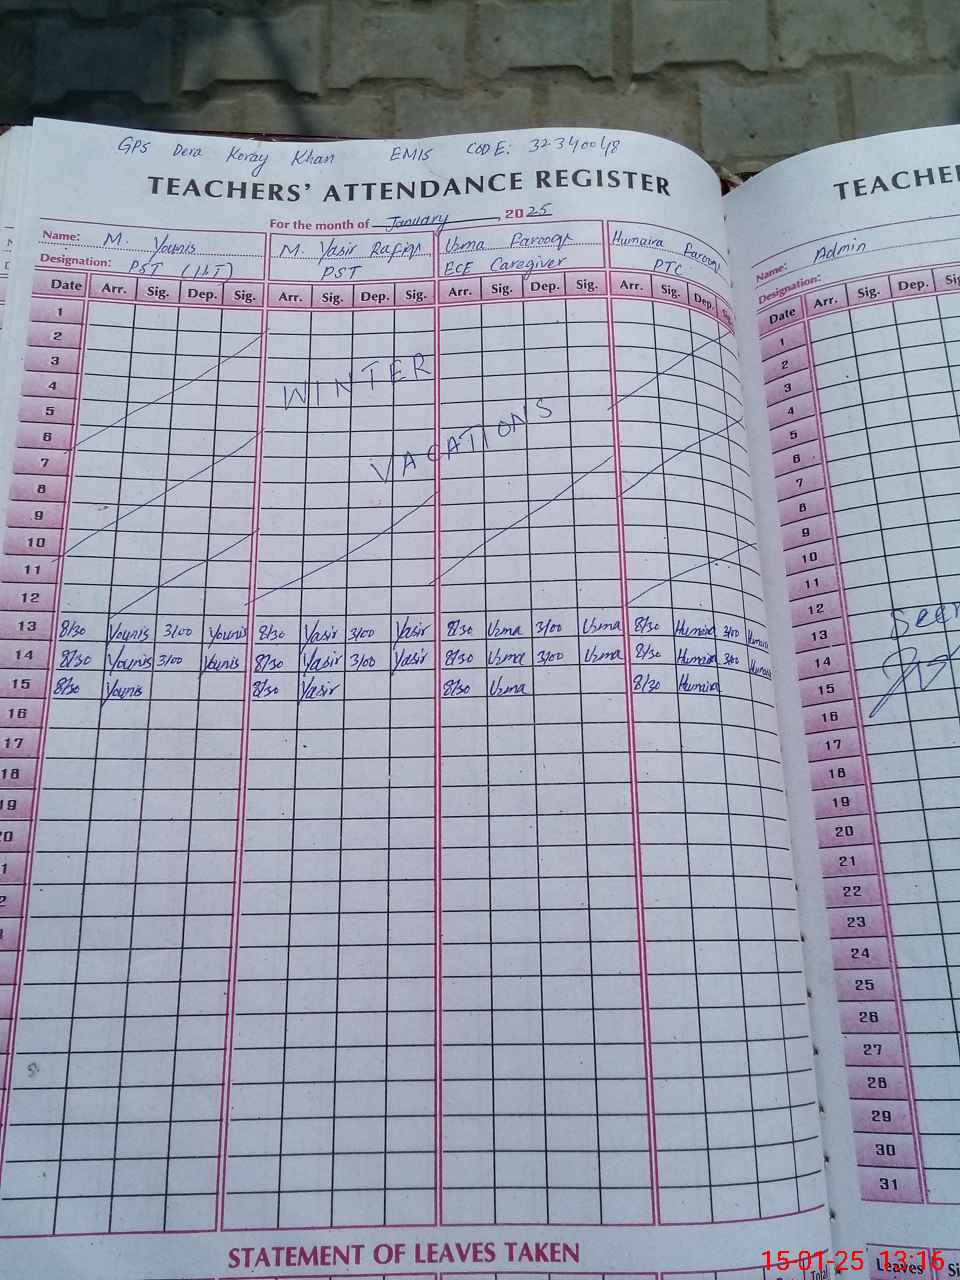 GPS Dera Koray Khan EMIS CODE: 32340048
TEACHERS' ATTENDANCE REGISTER
For the month of January, 2025
Name: M. Younis M. Yasir Rafiq Uzma Farooq Humaira Farooq
Designation: PST PST ECE Caregiver PTC
Date Arr. Sig. Dep. Sig. Arr. Sig. Dep. Sig. Arr. Sig. Dep. Sig. Arr. Sig. Dep. Sig.
1
2
3
4
5
6
7
8
9
10
11
12
WINTER
VACATIONS
13 8/30 Younis 3/00 Younis 8/30 Yasir 3/00 Yasir 8/30 Uzma 3/00 Uzma 8/30 Humaira 3/00 Humaira
14 8/30 Younis 3/00 Younis 8/30 Yasir 3/00 Yasir 8/30 Uzma 3/00 Uzma 8/30 Humaira 3/00 Humaira
15 8/30 Younis 8/30 Yasir 8/30 Uzma 8/30 Humaira
16
17
18
19
STATEMENT OF LEAVES TAKEN
Total
TEACHE
Name: Admin
Designation:
Date Arr. Sig. Dep.
1
2
3
4
5
6
7
8
9
10
11
12
13
14
15
16
17
18
19
20
21
22
23
24
25
26
27
28
29
30
31
Seen
Leaves
15-01-25 13:16